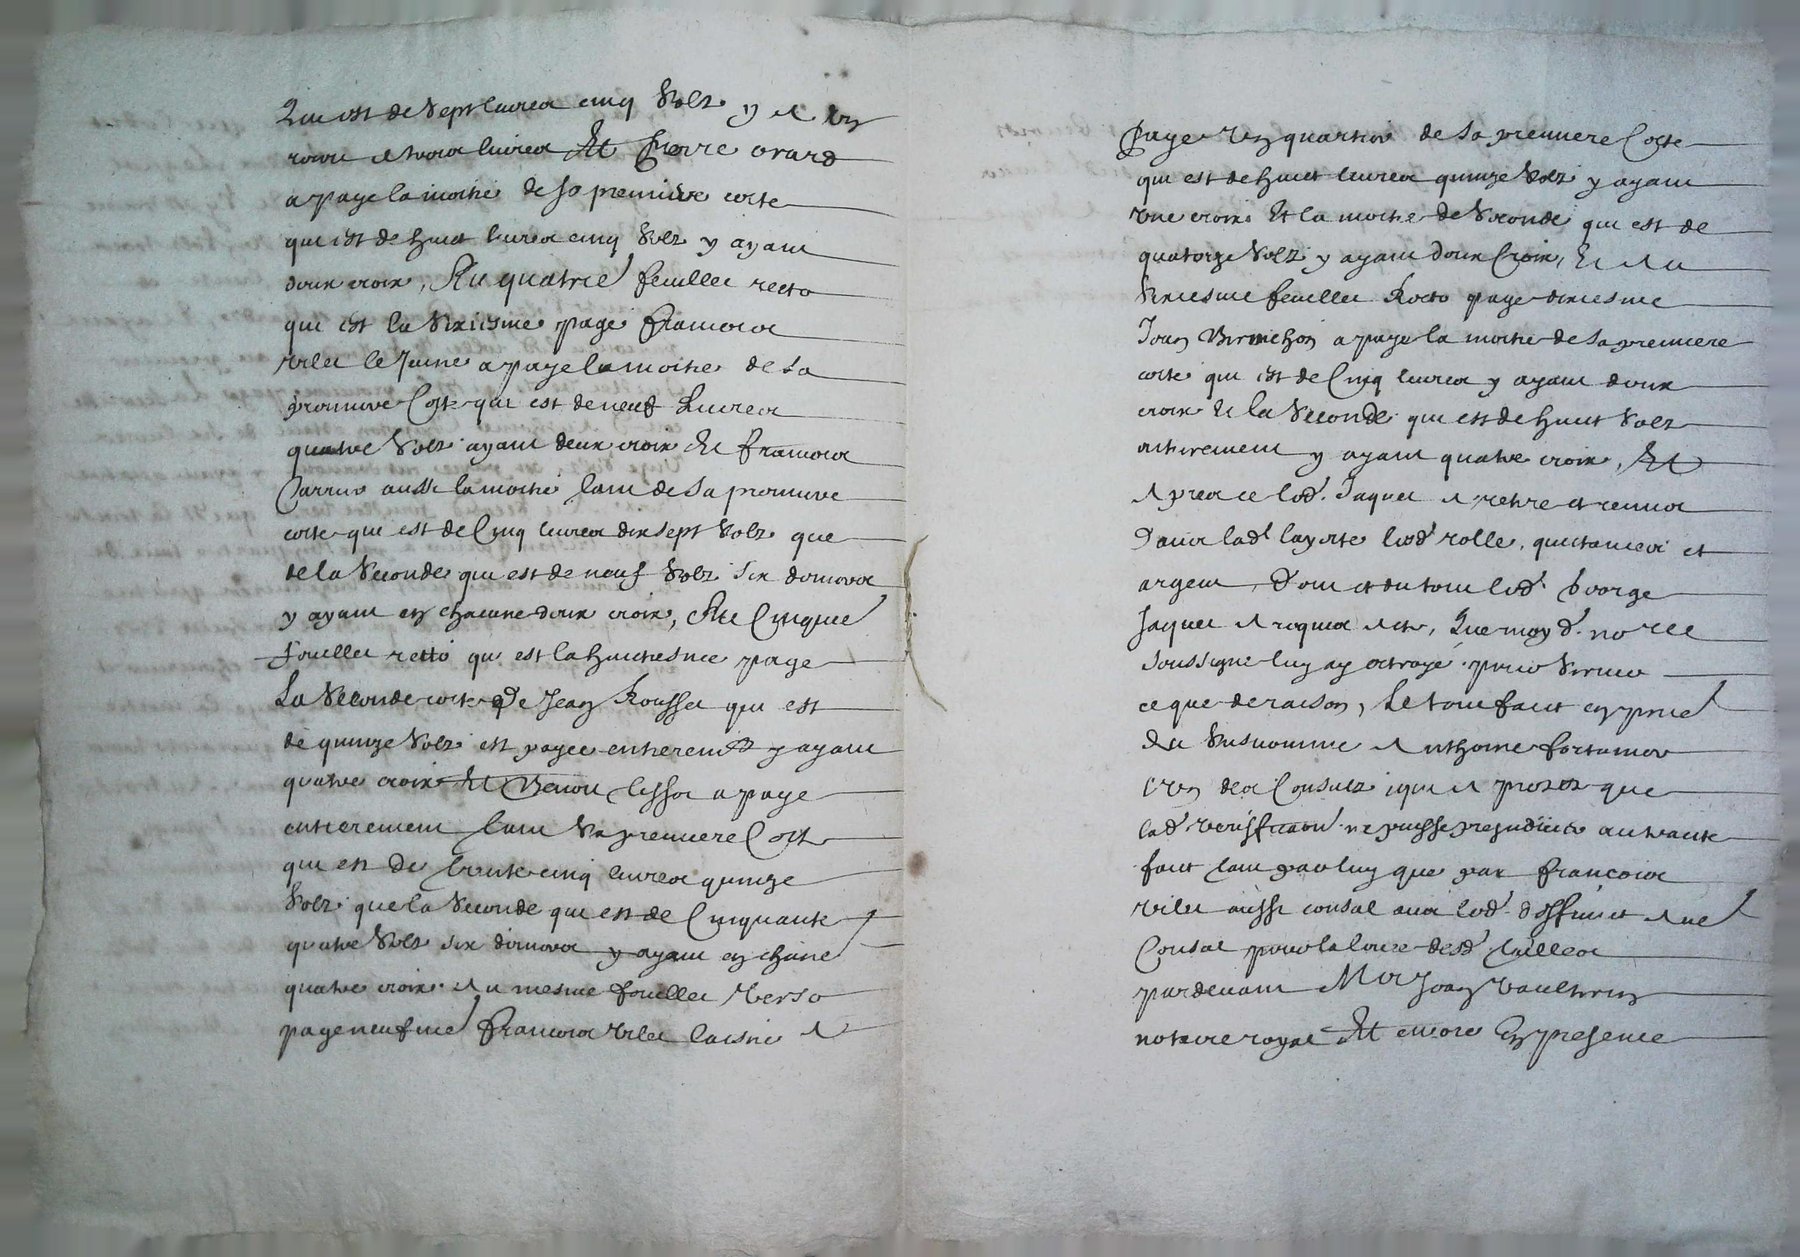 Qui est de Sept livres cinq Solz y a un
et trois livres Et Pierre ovard
a paye la moitie de sa premiere cotte
qui est de huict livres cinq Solz y ayant
deux croix, Au quatrie feuillet recto
qui est la Sixiesme page Francois
vilet le Jeune a paye la moitie de sa
premiere Cotte qui est de neuf Livres
quatre Solz ayant deux croix Et francois
aussi la moitie tant de sa premiere
cotte qui est de Cinq livres dix sept Solz que
de la Seconde qui est de neuf Solz six deniers
y ayant en chacune deux croix, Au Cinquie
feuillet retto qui est la huictiesme page
La Seconde cotte de Jean Rousset qui est
de quinze Solz est payee entieremt y ayant
quatre croix Et a paye
entierement tant Sa premiere Cotte
qui est de trente cinq livres quinze
Solz que la Seconde qui est de Cinquante
quatre Solz six deniers y ayant en chune
quatre croix Au mesme feuillet Verso
page neufme francois vilet laisne A
Paye un quartier de Sa premiere Cotte
qui est de huict livres quinze Solz y ayant
une croix Et la moitie de Seconde qui est de
quatorze Solz y ayant deux Croix, Et Au
Sixiesme feuillet Recto page dixiesme
Jean a paye la moitie de Sa premiere
cotte qui est de Cinq livres y ayant deux
croix Et la Seconde qui est de huict Solz
entierement y ayant quatre croix, Et
Apres ce led. Jaquet A retire et remis
dans lad layette led rolle, quictances et
argent, Dont et du tout led. George
Jaquet A requis Acte, Que moy d. noree
soussigne luy ay octroye pour Servir
ce que de raison, Le tout faict en pnce
du Susnomme Anthoine
Un des Consulz, qui A proteste que
lad veriffication ne puisse prejudicier au traitte
faict tant par luy que par francois
vilet aussi consul avec led. deffunct Ane
Consul pour la levee desd tailles
pardevant Mre Jean
notaire royal Et encore En presence